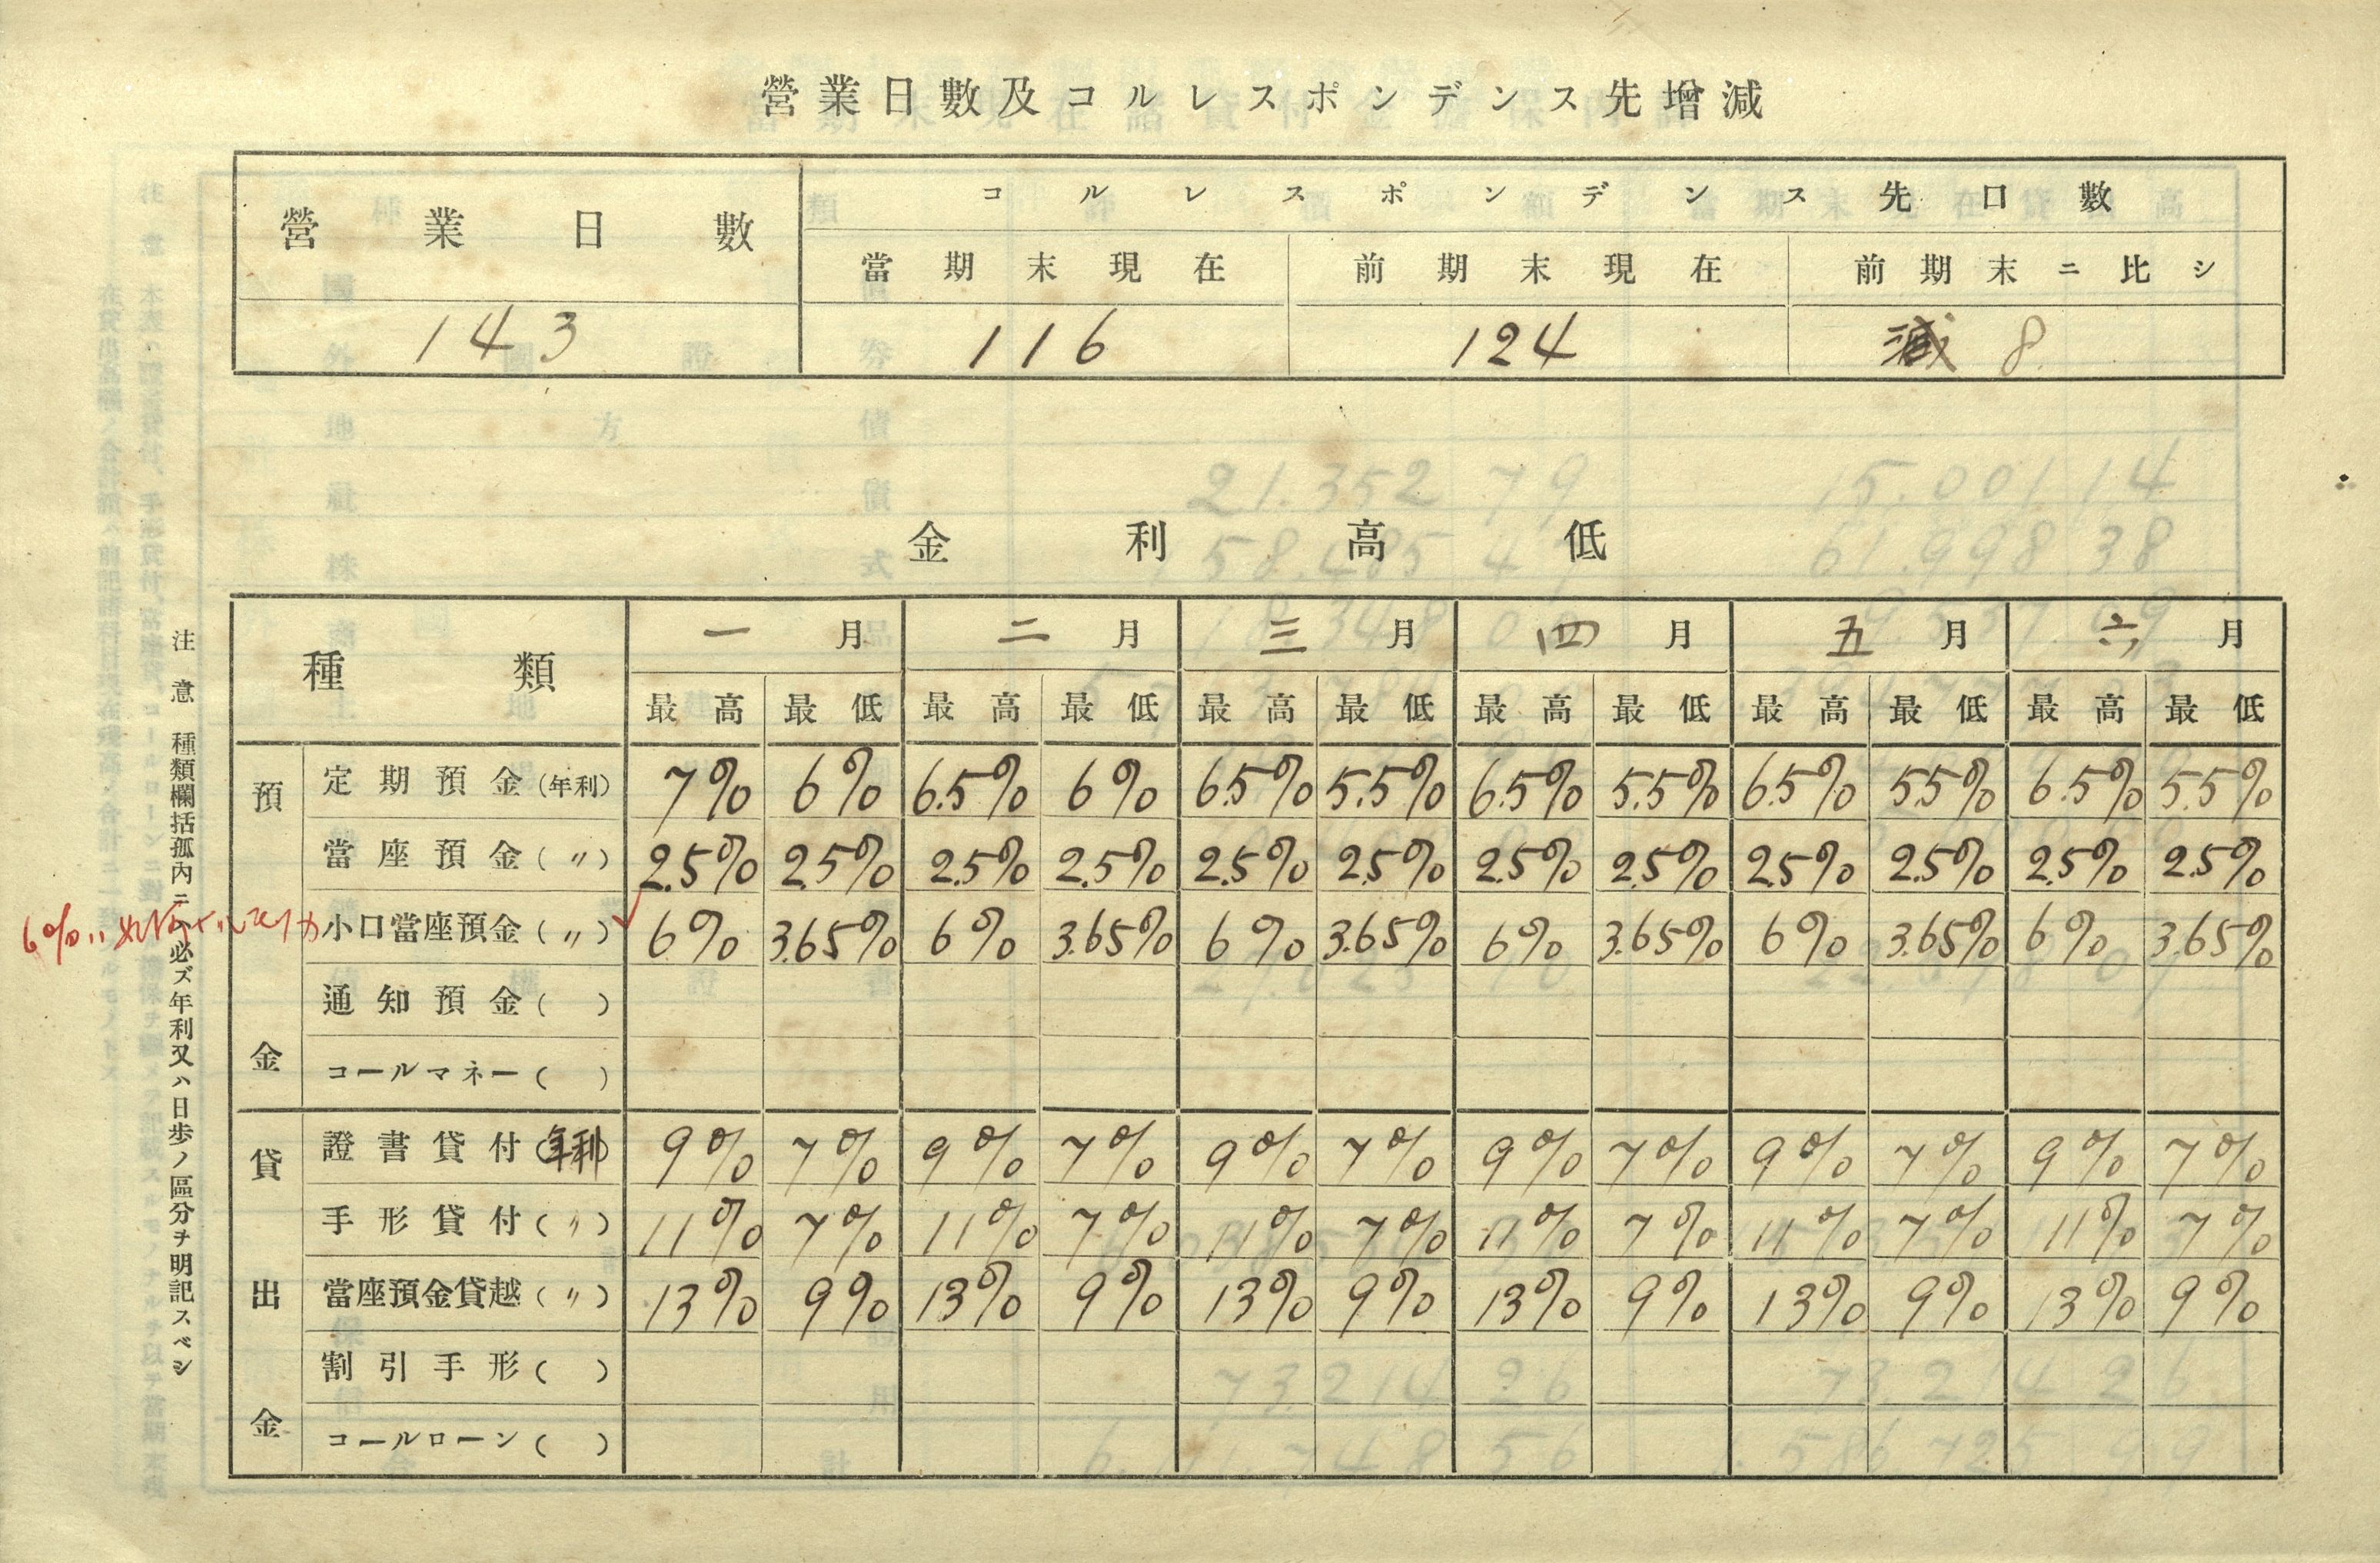 營業日數及コルレスポンデンス先增減
營業日數 コルレスポンデンス先口數
當期末現在 前期末現在 前期末ニ比シ
143 116 124 減 8
金利高低
種類 一月 二月 三月 四月 五月 六月
最高 最低 最高 最低 最高 最低 最高 最低 最高 最低 最高 最低
預金
定期預金(年利) 7% 6% 6.5% 6% 6.5% 5.5% 6.5% 5.5% 6.5% 5.5% 6.5% 5.5%
當座預金(〃) 2.5% 2.5% 2.5% 2.5% 2.5% 2.5% 2.5% 2.5% 2.5% 2.5% 2.5% 2.5%
小口當座預金(〃) 6% 3.65% 6% 3.65% 6% 3.65% 6% 3.65% 6% 3.65% 6% 3.65%
通知預金( )
コールマネー( )
貸出金
證書貸付(年利) 9% 7% 9% 7% 9% 7% 9% 7% 9% 7% 9% 7%
手形貸付(〃) 11% 7% 11% 7% 11% 7% 11% 7% 11% 7% 11% 7%
當座預金貸越(〃) 13% 9% 13% 9% 13% 9% 13% 9% 13% 9% 13% 9%
割引手形( )
コールローン( )
注意 種類欄括孤內ニハ必ズ年利又ハ日歩ノ區分ヲ明記スベシ
6%